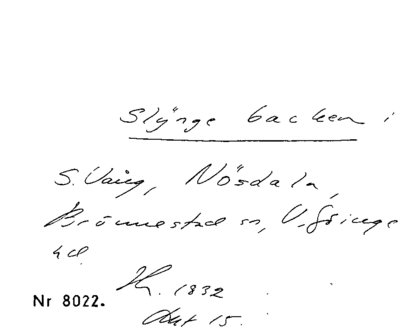 Slynge backen i
S. Vång, Nösdala,
Brönnestad sn, V. Göinge
hd
H. 1832
Akt 15.
Nr 8022.